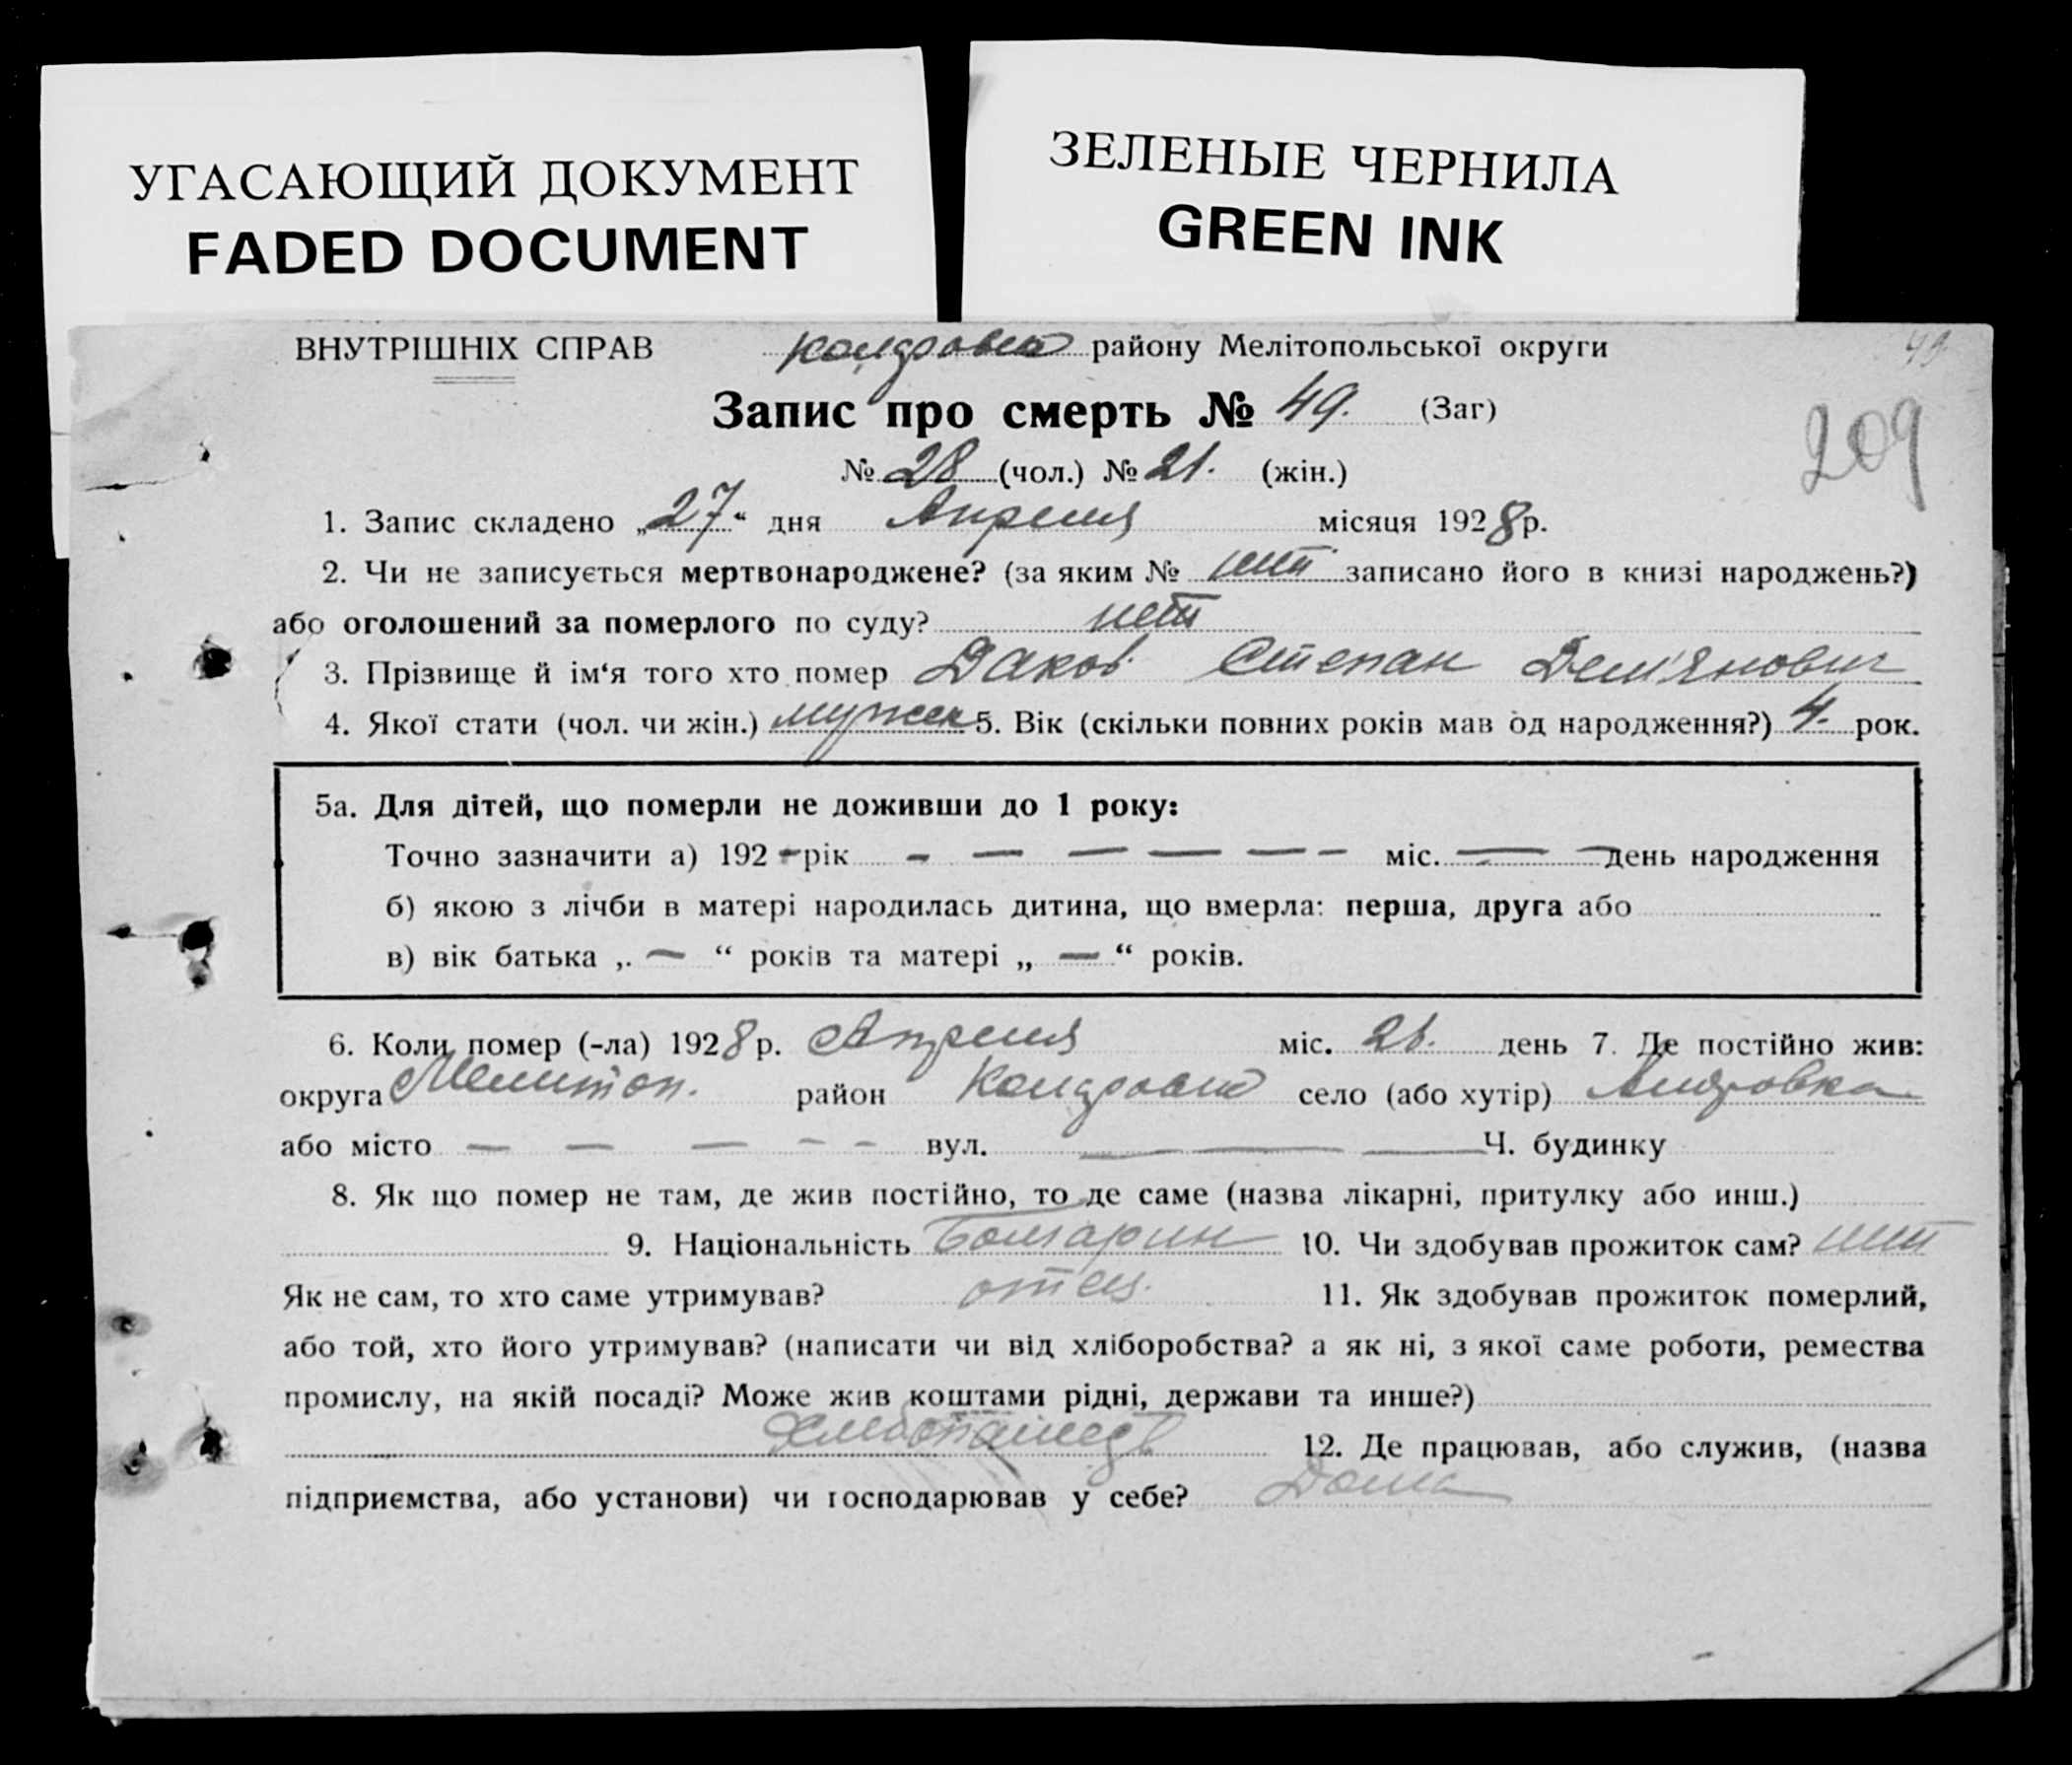 УГАСАЮЩИЙ ДОКУМЕНТ
FADED DOCUMENT
ЗЕЛЕНЫЕ ЧЕРНИЛА
GREEN INK
49.
ВНУТРІШНІХ СПРАВ району Мелітопольської округи
Запис про смерть № 49. (Заг)
209
№ 28 (чол.) № 21. (жін.)
1. Запис складено „27“ дня Апреля місяця 1928 р.
2. Чи не записується мертвонароджене? (за яким № нет записано його в книзі народжень?)
або оголошений за померлого по суду? нет
3. Прізвище й ім‘я того хто помер Даков Степан Дем'янович
4. Якої стати (чол. чи жін.) мужск 5. Вік (скільки повних років мав од народження?) 4. рок.
5а. Для дітей, що померли не доживши до 1 року:
Точно зазначити а) 192 – рік – — — — — – міс. — день народження
б) якою з лічби в матері народилась дитина, що вмерла: перша, друга або
в) вік батька „ — “ років та матері „ — “ років.
6. Коли помер (-ла) 1928 р. Апреля міс. день 7. Де постійно жив:
округа Мелитоп. район село (або хутір)
або місто — — — - - - вул. — — — Ч. будинку
8. Як що помер не там, де жив постійно, то де саме (назва лікарні, притулку або инш.)
9. Національність Болгарин 10. Чи здобував прожиток сам? нет
Як не сам, то хто саме утримував? отец. 11. Як здобував прожиток померлий,
або той, хто його утримував? (написати чи від хліборобства? а як ні, з якої саме роботи, ремества
промислу, на якій посаді? Може жив коштами рідні, держави та инше?)
12. Де працював, або служив, (назва
підприємства, або установи) чи господарював у себе? Дома